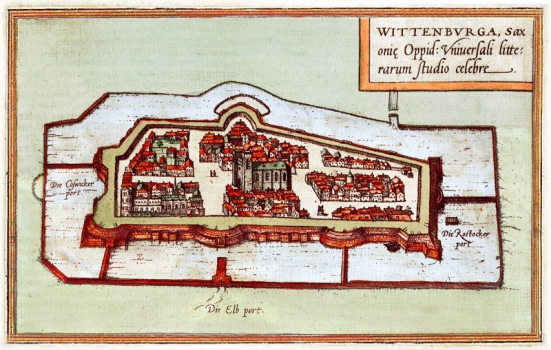 WITTENBVRGA, Sax
onię Oppid: Vniversali litte-
rarum studio celebre
Die Coswicker
port.
Die Rostocker
port
Die Elb port.